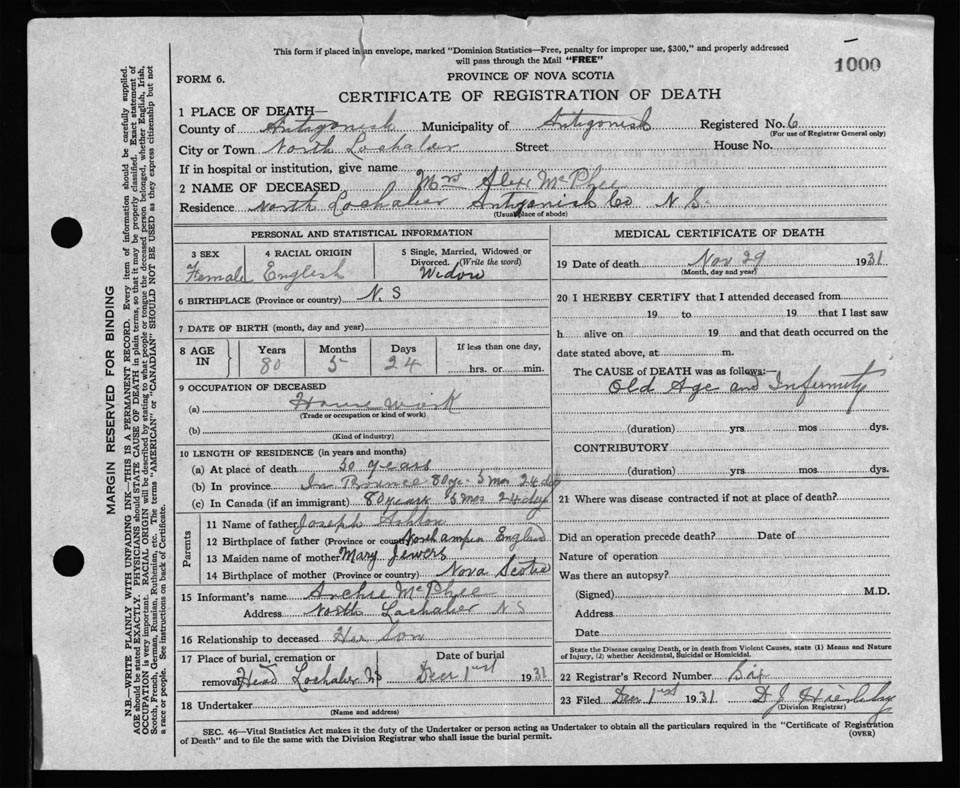 This form if placed in an envelope, marked "Dominion Statistics—Free, penalty for improper use, $300," and properly addressed
will pass through the Mail "FREE"
1000
FORM 6.
PROVINCE OF NOVA SCOTIA
CERTIFICATE OF REGISTRATION OF DEATH
1 PLACE OF DEATH—
County of Antigonish Municipality of Antigonish Registered No. 6
(For use of Registrar General only)
City or Town North Lochaber Street House No.
If in hospital or institution, give name
2 NAME OF DECEASED Mrs Alex McPhee
Residence North Lochaber Antigonish Co N S.
(Usual place of abode)
PERSONAL AND STATISTICAL INFORMATION
3 SEX 4 RACIAL ORIGIN 5 Single, Married, Widowed or
Divorced. (Write the word)
Female English Widow
6 BIRTHPLACE (Province or country) N. S
7 DATE OF BIRTH (month, day and year)
8 AGE IN Years Months Days If less than one day,
80 5 24 hrs. or min.
9 OCCUPATION OF DECEASED
(a) House work
(Trade or occupation or kind of work)
(b)
(Kind of industry)
10 LENGTH OF RESIDENCE (in years and months)
(a) At place of death 50 years
(b) In province In Province 80 yr. 5 mos 24 day
(c) In Canada (if an immigrant) 80 years 5 mos 24 days
Parents
11 Name of father Joseph
12 Birthplace of father (Province or country) England
13 Maiden name of mother Mary Jewers
14 Birthplace of mother (Province or country) Nova Scotia
15 Informant's name Archie McPhee
Address North Lochaber N S
16 Relationship to deceased Her Son
17 Place of burial, cremation or Date of burial
removal Head Lochaber Decr 1st 1931
18 Undertaker
(Name and address)
MEDICAL CERTIFICATE OF DEATH
19 Date of death Nov 29 1931
(Month, day and year)
20 I HEREBY CERTIFY that I attended deceased from
19 to 19 that I last saw
h alive on 19 and that death occurred on the
date stated above, at m.
The CAUSE of DEATH was as follows:—
Old Age and Infirmity
(duration) yrs. mos dys.
CONTRIBUTORY
(duration) yrs. mos. dys.
21 Where was disease contracted if not at place of death?
Did an operation precede death? Date of
Nature of operation
Was there an autopsy?
(Signed) M.D.
Address
Date
State the Disease causing Death, or in death from Violent Causes, state (1) Means and Nature
of Injury, (2) whether Accidental, Suicidal or Homicidal.
22 Registrar's Record Number Six
23 Filed Decr 1st 1931 D J
(Division Registrar)
SEC. 46—Vital Statistics Act makes it the duty of the Undertaker or person acting as Undertaker to obtain all the particulars required in the "Certificate of Registration
of Death" and to file the same with the Division Registrar who shall issue the burial permit.
(OVER)
MARGIN RESERVED FOR BINDING
N.B.—WRITE PLAINLY WITH UNFADING INK—THIS IS A PERMANENT RECORD. Every item of information should be carefully supplied.
AGE should be stated EXACTLY. PHYSICIANS should STATE CAUSE OF DEATH in plain terms, so that it may be properly classified. Exact statement of
OCCUPATION is very important. RACIAL ORIGIN will be described by stating to what people or tongue the deceased person belonged, whether English, Irish,
Scotch, French, German, Russian, Ruthenian, etc. The terms "AMERICAN" or "CANADIAN" SHOULD NOT BE USED as they express citizenship but not
a race or people. See instructions on back of Certificate.